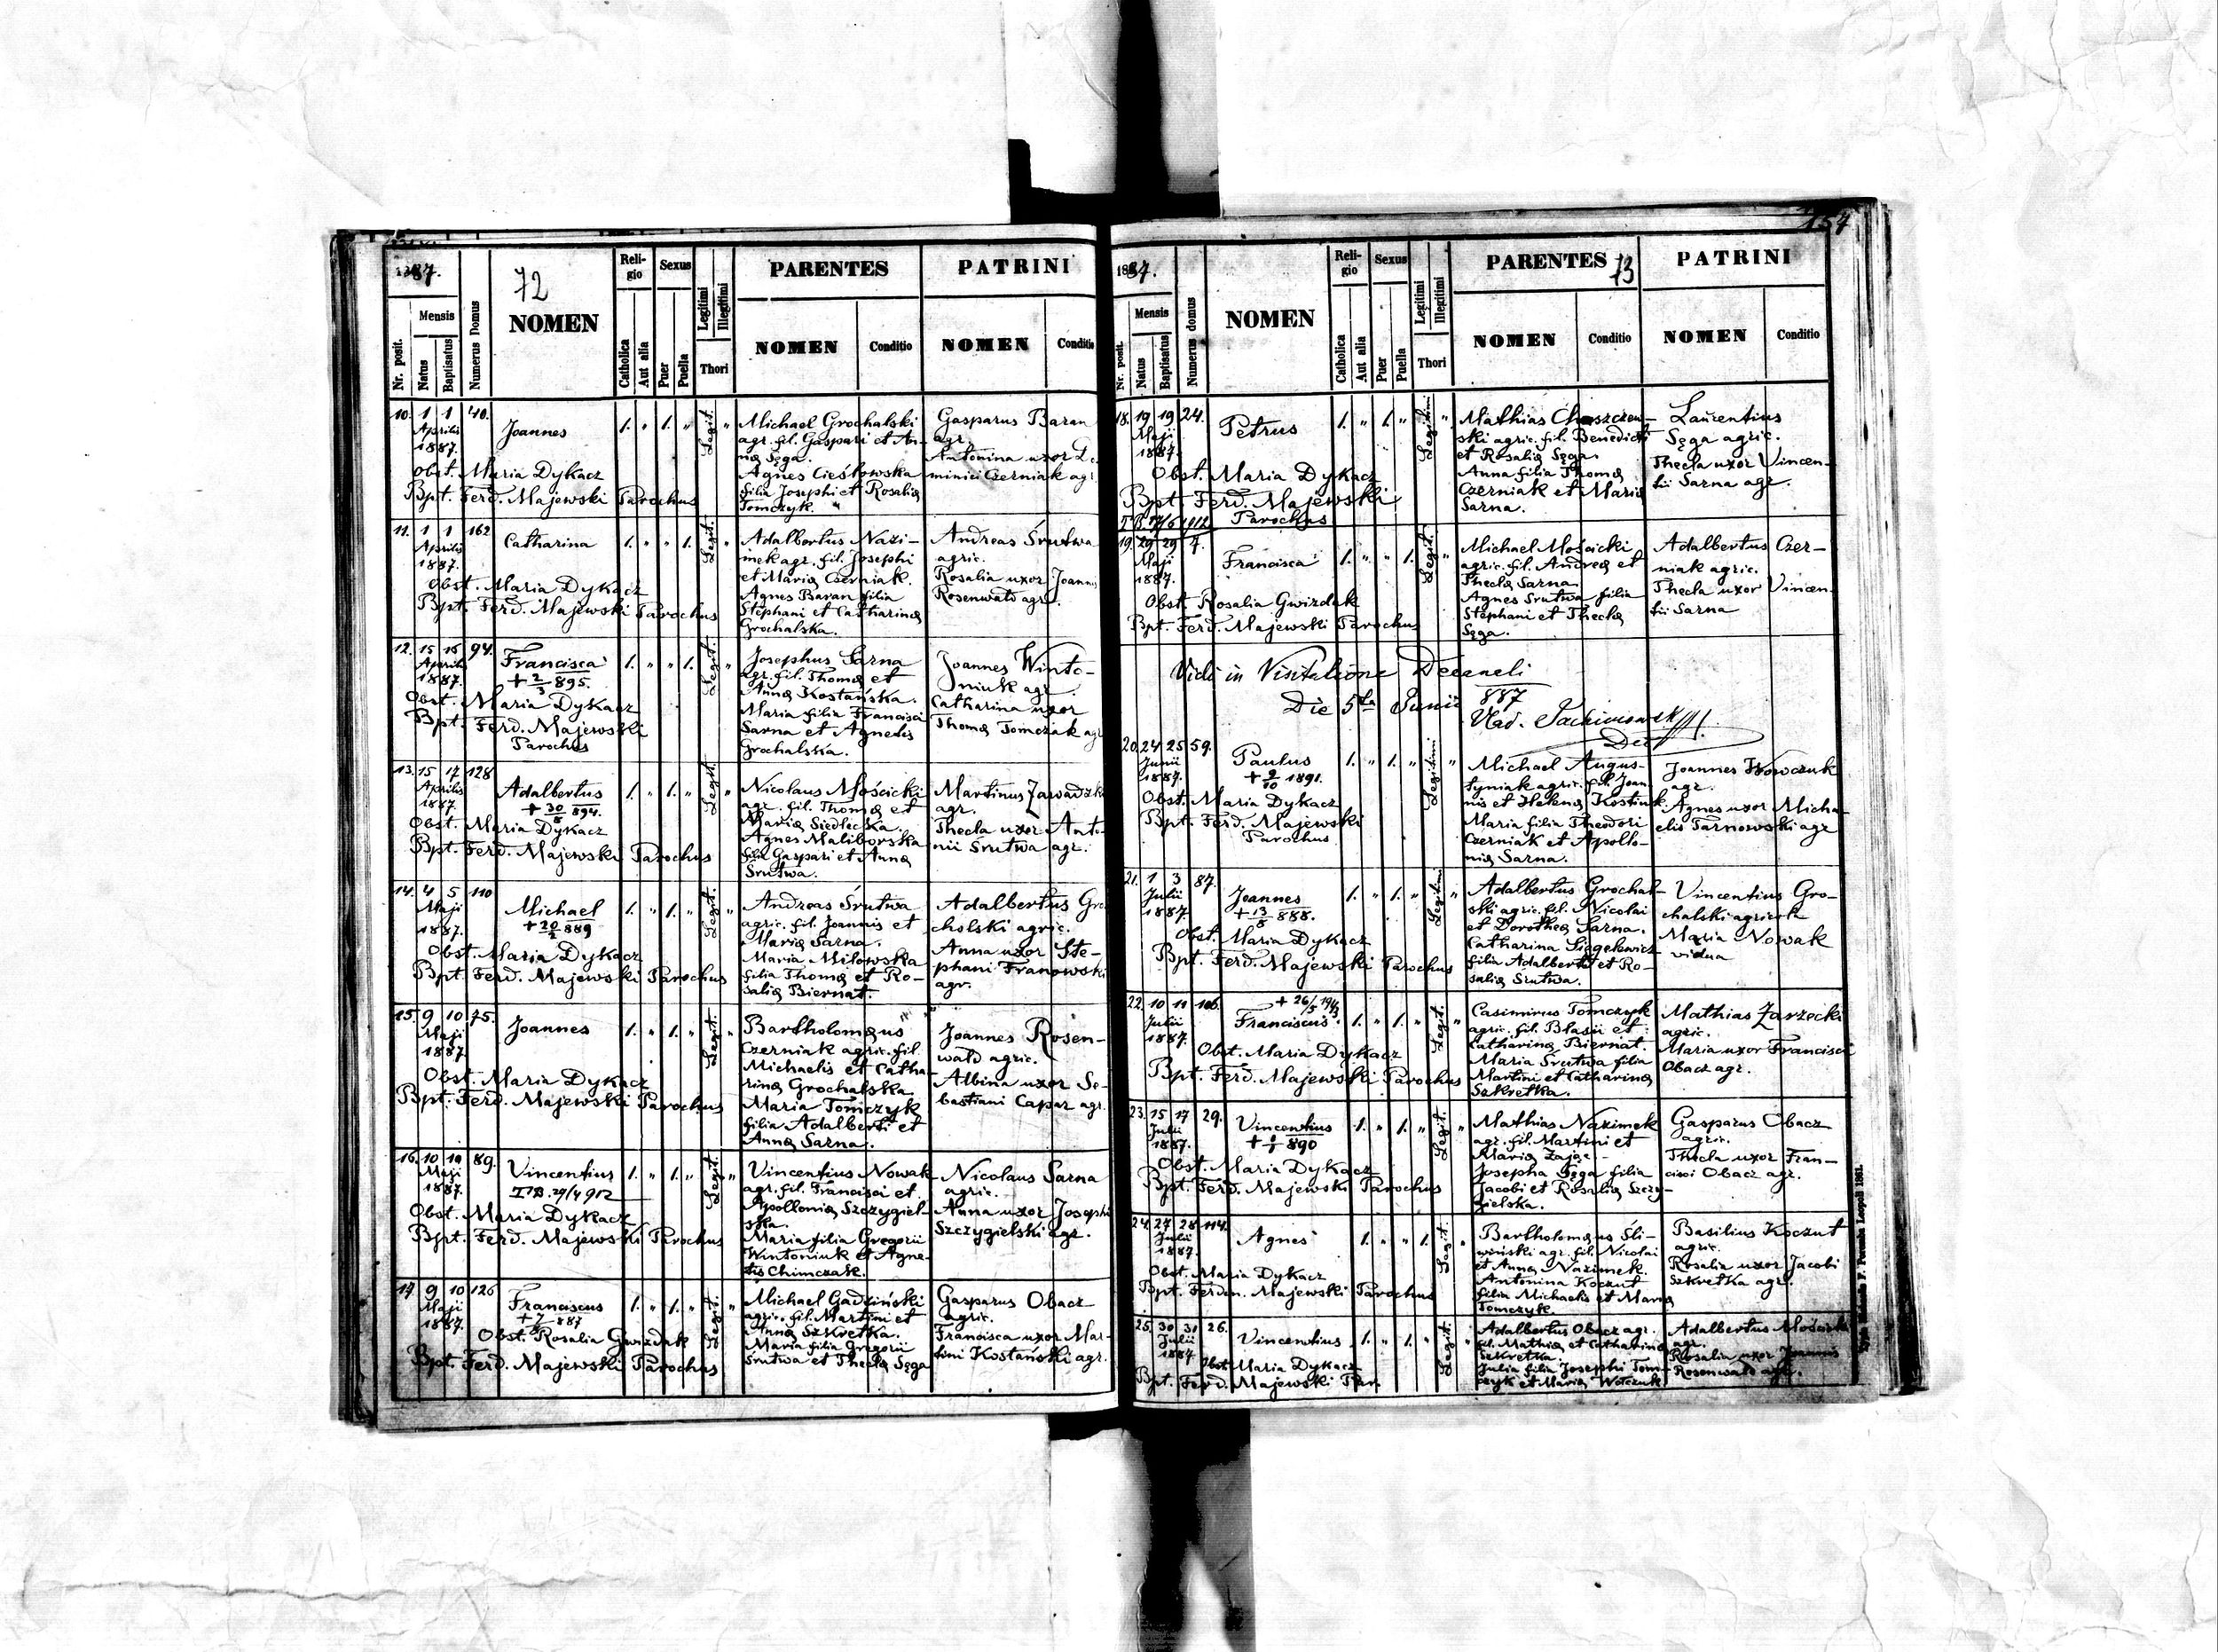 1887.
72
Nr. posit.
Mensis
Natus
Baptisatus
Numerus Domus
NOMEN
Religio
Catholica
Aut alia
Sexus
Puer
Puella
Legitimi
Illegitimi
Thori
PARENTES
NOMEN
Conditio
PATRINI
NOMEN
Conditio
10. 1 1 40.
Aprilis
1887.
Joannes
1. " 1. "
Legit. "
Obst. Maria Dykacz
Bpt. Ferd. Majewski Parochus
Michael Grochalski
agr. fil. Gaspari et An-
næ Sęga.
Agnes Cieśkowska
filia Josephi et Rosaliæ
Tomczyk.
Gasparus Baran
agr.
Antonina uxor Do
minici Czerniak agr.
11. 1 1 162
Aprilis
1887.
Catharina
1. " " 1.
Legit. "
Obst. Maria Dykacz
Bpt. Ferd. Majewski Parochus
Adalbertus Nazi-
mek agr. fil. Josephi
et Mariæ Czerniak.
Agnes Baran filia
Stephani et Catharinæ
Grochalska.
Andreas Śrutwa
agric.
Rosalia uxor Joannis
Rosenwald agr.
12. 15 16 94.
Aprilis
1887.
Francisca
+ 2/3 895.
1. " " 1.
Legit. "
Obst. Maria Dykacz
Bpt. Ferd. Majewski
Parochus
Josephus Sarna
agr. fil. Thomæ et
Annæ Kostańska.
Maria filia Francisci
Sarna et Agnetis
Grochalska.
Joannes Winto-
niuk agr.
Catharina uxor
Thomæ Tomczak agr
13. 15 17 128
Aprilis
1887.
Adalbertus
+ 30/8 894.
1. " 1. "
Legit. "
Obst. Maria Dykacz
Bpt. Ferd. Majewski Parochus
Nicolaus Mościcki
agr. fil. Thomæ et
Mariæ Siedlecka.
Agnes Maliborska
filia Gaspari et Annæ
Śrutwa.
Martinus Zawadzki
agr.
Thecla uxor Anto-
nii Śrutwa agr.
14. 4 5 110
Maji
1887.
Michael
+ 20/2 889
1. " 1. "
Legit. "
Obst. Maria Dykacz
Bpt. Ferd. Majewski Parochus
Andreas Śrutwa
agric. fil. Joannis et
Mariæ Sarna.
Maria Milowska
filia Thomæ et Ro-
saliæ Biernat.
Adalbertus Gro
cholski agric.
Anna uxor Ste-
phani Franowski
agr.
15. 9 10 75.
Maji
1887.
Joannes
1. " 1. "
Legit. "
Obst. Maria Dykacz
Bpt. Ferd. Majewski Parochus
Bartholomæus
Czerniak agric. fil.
Michaelis et Catha-
rinæ Grochalska.
Maria Tomczyk
filia Adalberti et
Annæ Sarna.
Joannes Rosen-
wald agric.
Albina uxor Se-
bastiani Capar agr.
16. 10 10 89.
Maji
1887.
Vincentius
29/4 912
1. " 1. "
Legit. "
Obst. Maria Dykacz
Bpt. Ferd. Majewski Parochus
Vincentius Nowak
agr. fil. Francisci et
Apolloniæ Szczygiel-
ska.
Maria filia Gregorii
Wintoniuk et Agne-
tis Chimczak.
Nicolaus Sarna
agric.
Anna uxor Josephi
Szczygielski agr.
17. 9 10 126
Maji
1887.
Franciscus
887
1. " 1. "
Legit. "
Obst. Rosalia Gwizdak
Bpt. Ferd. Majewski Parochus
Michael Gadziński
agric. fil. Martini et
Annæ Szkretka.
Maria filia Gregorii
Śrutwa et Theclæ Sęga
Gasparus Obacz
agric.
Francisca uxor Mar-
tini Kostański agr.
154
1887.
73
Nr. posit.
Mensis
Natus
Baptisatus
Numerus domus
NOMEN
Religio
Catholica
Aut alia
Sexus
Puer
Puella
Legitimi
Illegitimi
Thori
PARENTES
NOMEN
Conditio
PATRINI
NOMEN
Conditio
18. 19 19 24.
Maji
1887.
Petrus
1. " 1. "
Legitimi "
Obst. Maria Dykacz
Bpt. Ferd. Majewski
Parochus
17/6 1912
Mathias Choszczew-
ski agric. fil. Benedicti
et Rosaliæ Sęga.
Anna filia Thomæ
Czerniak et Mariæ
Sarna.
Laurentius
Sęga agric.
Thecla uxor Vincen-
tii Sarna agr.
19. 29 29 7.
Maji
1887.
Francisca
1. " " 1.
Legit. "
Obst. Rosalia Gwizdak
Bpt. Ferd. Majewski Parochus
Michael Mościcki
agric. fil. Andreæ et
Theclæ Sarna.
Agnes Śrutwa filia
Stephani et Theclæ
Sęga.
Adalbertus Czer-
niak agric.
Thecla uxor Vincen-
tii Sarna
Vidi in Visitatione Decanali
Die 5ta Junii 887
Vlad.
Dec
20. 24 25 59.
Junii
1887.
Paulus
+ 9/10 1891.
1. " 1. "
Legitimi "
Obst. Maria Dykacz
Bpt. Ferd. Majewski
Parochus
Michael Augus-
tyniak agric. fil. Joan
nis et Helenæ Kostiuk.
Maria filia Theodori
Czerniak et Apollo-
niæ Sarna.
Joannes Wowczuk
agr.
Agnes uxor Micha-
elis Tarnowski agr
21. 1 3 87.
Julii
1887.
Joannes
+ 13/8 888.
1. " 1. "
Legitimi "
Obst. Maria Dykacz
Bpt. Ferd. Majewski Parochus
Adalbertus Grochal-
ski agric. fil. Nicolai
et Dorotheæ Sarna.
Catharina
filia Adalberti et Ro-
saliæ Śrutwa.
Vincentius Gro-
chalski agricola
Maria Nowak
vidua
22. 10 11 106.
Julii
1887.
+ 26/5 1943
Franciscus
1. " 1. "
Legit. "
Obst. Maria Dykacz
Bpt. Ferd. Majewski Parochus
Casimirus Tomczyk
agric. fil. Blasii et
Catharinæ Biernat.
Maria Śrutwa filia
Martini et Catharinæ
Szkretka.
Mathias Zarzecki
agric.
Maria uxor Francisci
Obacz agr.
23. 15 17 29.
Julii
1887.
Vincentius
890
1. " 1. "
Legit. "
Obst. Maria Dykacz
Bpt. Ferd. Majewski Parochus
Mathias Nazimek
agr. fil. Martini et
Mariæ Zając-
Josepha Sęga filia
Jacobi et Rosaliæ Szczy-
gielska.
Gasparus Obacz
agric.
Thecla uxor Fran-
cisci Obacz agr.
24. 27 28 114.
Julii
1887.
Agnes
1. " " 1.
Legit. "
Obst. Maria Dykacz
Bpt. Ferdin. Majewski Parochus
Bartholomæus Śli-
wiński agr. fil. Nicolai
et Annæ Nazimek.
Antonina Koczut
filia Michaelis et Mariæ
Tomczyk.
Basilius Koczut
agric.
Rosalia uxor Jacobi
Szkretka agr.
25. 30 31 26.
Julii
1887
Vincentius
1. " 1. "
Legit. "
Obst. Maria Dykacz
Bpt. Ferd. Majewski Par.
Adalbertus Obacz agr.
fil. Mathiæ et Catharinæ
Szkretka.
Julia filia Josephi Tom-
czyk et Mariæ Wołczuk
Adalbertus Mościcki
agr.
Rosalia uxor Joannis
Rosenwald agr.